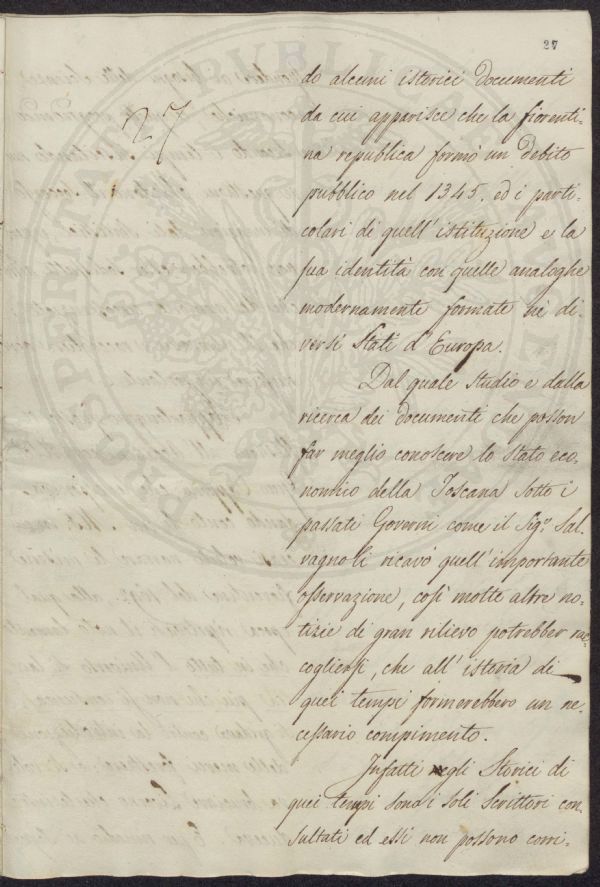 27
27
do alcuni istorici documenti
da cui apparisce che la fiorenti-
na republica formò un debito
pubblico nel 1345. ed i parti-
colari di quell'istituzione e la
sua identità con quelle analoghe
modernamente formate nè di-
versi Stati d'Europa.
Dal quale studio e dalla
ricerca dei documenti che posson
far meglio conoscere lo stato eco-
nomico della Toscana sotto i
passati Governi come il Sigr. Sal-
vagnoli ricavò quell'importante
osservazione, così molte altre no-
tizie di gran rilievo potrebber rac-
cogliersi, che all'istoria di
quei tempi formerebbero un ne-
cessario compimento.
Infatti negli Storici di
quei tempi sono i soli Scrittori con-
sultati ed essi non possono corri-
PROSPERITATI PUBLICAE